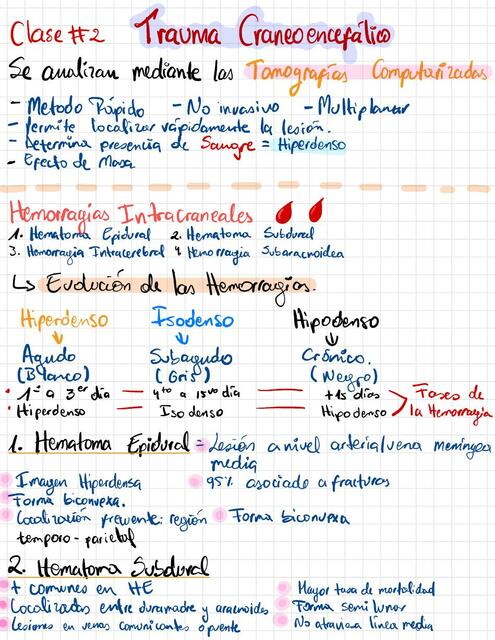 Clase #2 Trauma Craneoencefálico
Se analizan mediante las Tomografías Computarizadas
- Método Rápido - No invasivo - Multiplanar
- Permite localizar rápidamente la lesión.
- Determina presencia de Sangre = Hiperdenso
- Efecto de Masa
Hemorragias Intracraneales
1. Hematoma Epidural 2. Hematoma Subdural
3. Hemorragia Intracerebral 4 Hemorragia Subaracnoidea
↳ Evolución de las Hemorragias.
Hiperdenso Isodenso Hipodenso
↓ ↓ ↓
Agudo Subagudo Crónico.
(Blanco) (Gris) (Negro)
• 1º a 3er día — 4to a 15vo día — +15 días
• Hiperdenso — Isodenso — Hipodenso
Fases de
la Hemorragia
1. Hematoma Epidural = Lesión a nivel arterial/vena meníngea
media
Imagen Hiperdensa
95% asociado a fracturas
Forma biconvexa.
Localización frecuente: región
temporo-parietal
Forma biconvexa
2. Hematoma Subdural
+ comunes en HE
Mayor tasa de mortalidad
Localizados entre duramadre y aracnoides
Forma semilunar
Lesiones en venas comunicantes o puente
No atraviesa línea media